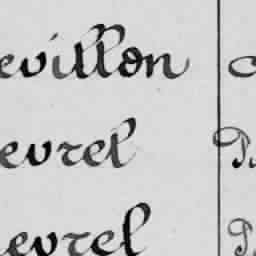 evillon
evrel
evrel